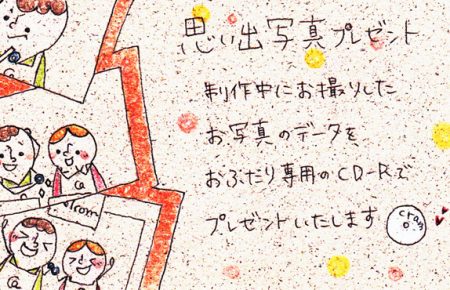 思い出写真プレゼント
制作中にお撮りした
お写真のデータを
おふたり専用のCD-Rで
プレゼントいたします
cram
from